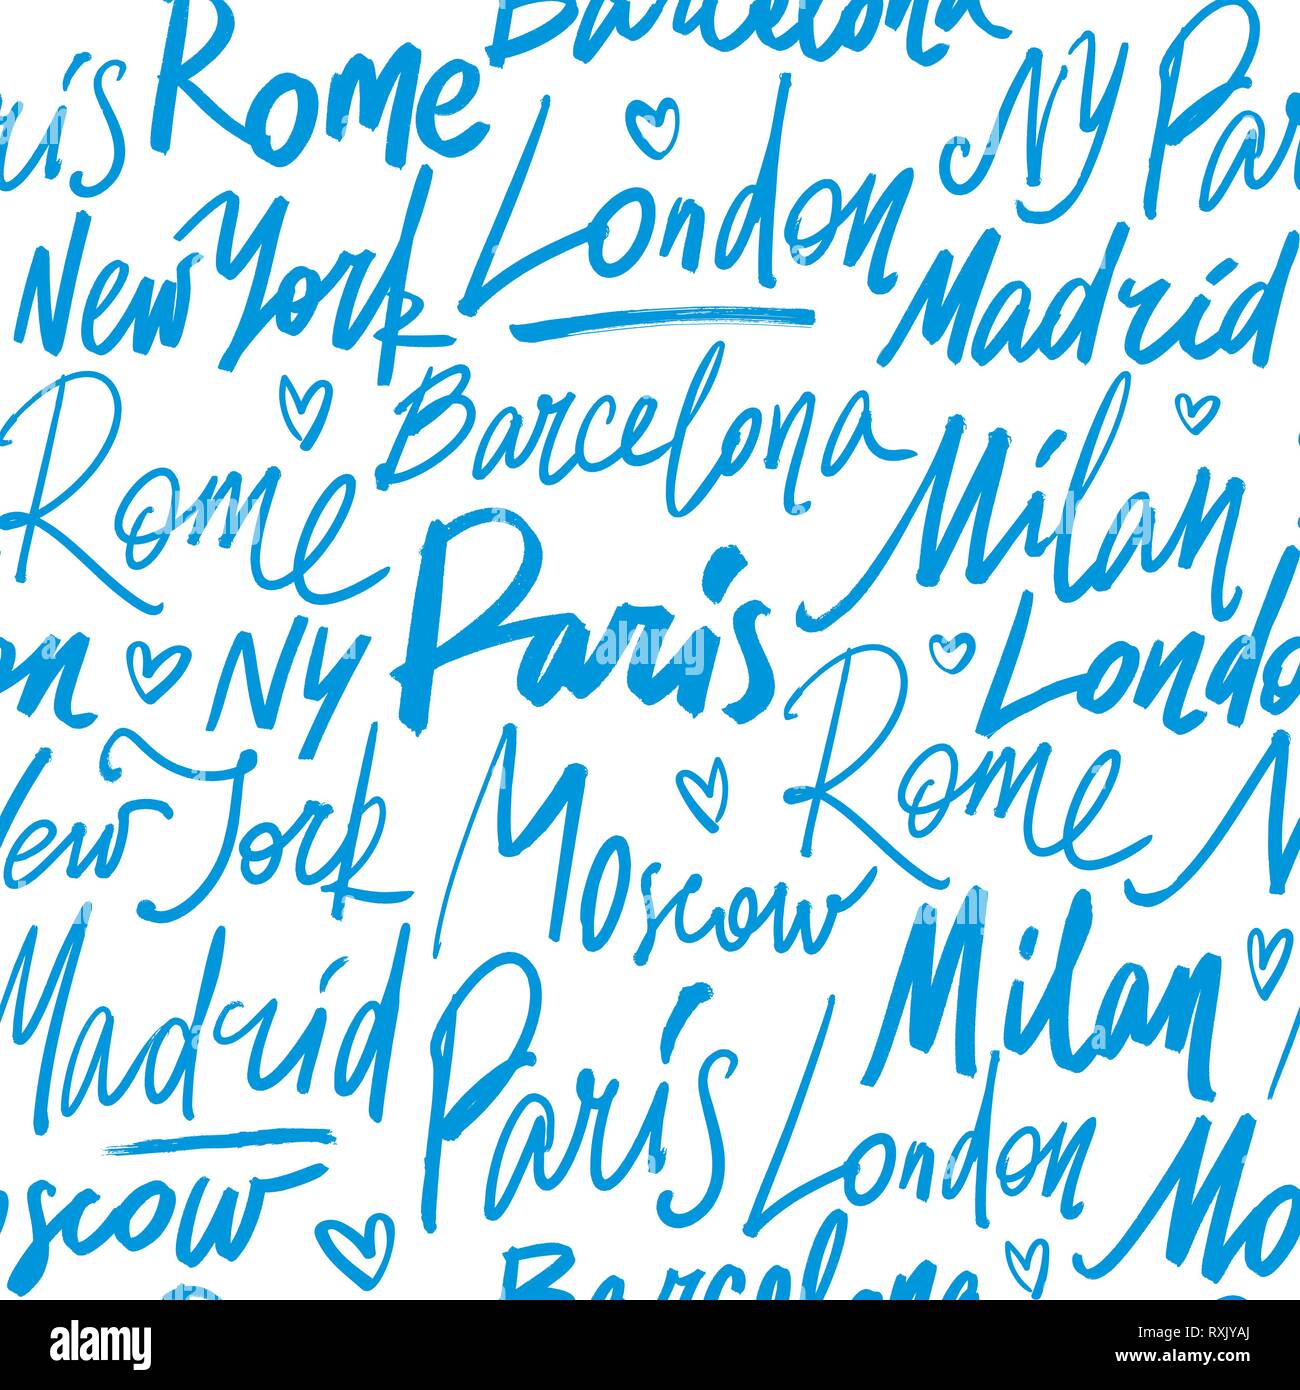 Barcelona
Rome
ris
London
NY
Par
New York
Madrid
Barcelona
Rome
Milan
Paris
London
on
NY
Rome
New York
Moscow
Milan
Madrid
Paris
London
Moscow
Mo
Barcelona
alamy
Image ID: RXJYAJ
www.alamy.com